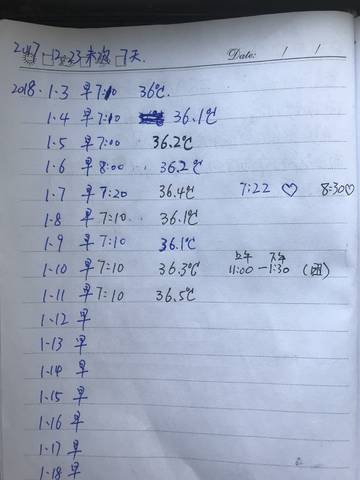 2017-12-23来 7天.
Date: / /
2018.1.3 早7:10 36℃.
1.4 早7:10 36.1℃
1.5 早7:00 36.2℃
1.6 早8:00 36.2℃
1.7 早7:20 36.4℃ 7:22 ♡ 8:30♡
1.8 早7:10 36.1℃
1.9 早7:10 36.1℃
上午 下午
1.10 早7:10 36.3℃ 11:00-1:30 ( )
1.11 早7:10 36.5℃
1-12 早
1-13 早
1-14 早
1-15 早
1-16 早
1-17 早
1-18 早